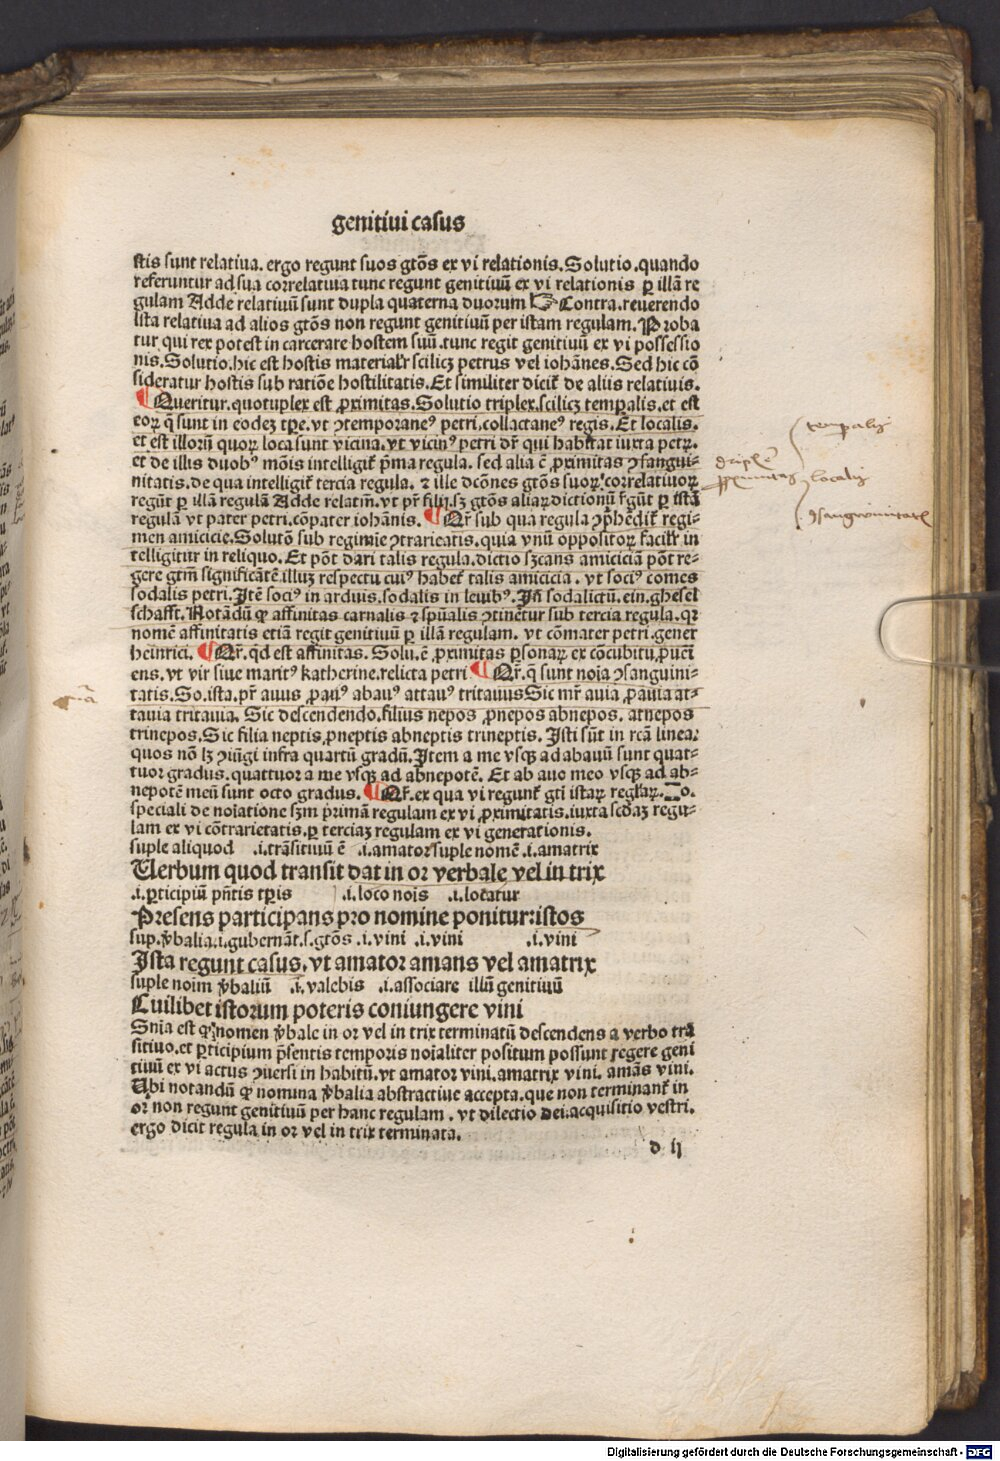 genitiui casus
stis sunt relatiua. ergo regunt suos gtōs ex vi relationis. Solutio. quando
referuntur ad sua correlatiua tunc regunt genitiuū ex vi relationis ꝑ illā re
gulam Adde relatiuū sunt dupla quaterna duorum ☞ Contra. reuerendo
lista relatiua ad alios gtōs non regunt genitiuū per istam regulam. Proba
tur qui rex potest in carcerare hostem suū. tunc regit genitiuū ex vi possessio
nis. Solutio. hic est hostis materialr̄ scilicꝫ petrus vel iohānes. Sed hic cō
sideratur hostis sub ratiōe hostilitatis. Et similiter dicit̄ de aliis relatiuis.
¶ Queritur. quotuplex est ꝓximitas. Solutio triplex. scilicꝫ temꝑalis. et est
eoꝝ q̄ sunt in eodeꝫ tꝑe. vt ꝯtemporaneꝰ petri. collactaneꝰ regis. Et localis.
et est illorū quoꝝ loca sunt vicina. vt vicinꝰ petri dr̄ qui habitat iuxta petꝝ.
et de illis duobꝰ mōis intelligit̄ p̄ma regula. sed alia ē ꝓximitas ꝯsangui⸗
nitatis. de qua intelligit̄ tercia regula. ⁊ ille dcōnes gtōs suoꝝ correlatiuoꝝ
regūt ꝑ illā regulā Adde relatīn. vt pr̄ filij. sꝫ gtōs aliaꝝ dictionū r̄gūt ꝑ istā
regulā vt pater petri. cōpater iohānis. ¶ Qr̄ sub qua regula ꝯp̄hēdit̄ regi⸗
men amicicie. Solutō sub regimīe ꝯtrarietatis. quia vnū oppositoꝝ facilr̄ in
telligitur in reliquo. Et pōt dari talis regula. dictio sꝫcans amiciciā pōt re⸗
gere gtm̄ significātē illuꝫ respectu cuiꝰ habet̄ talis amicicia. vt sociꝰ comes
sodalis petri. Itē sociꝰ in arduis. sodalis in leuibꝰ. Iñ sodalictū. ein. ghesel
schafft. Notādū ꝙ affinitas carnalis ⁊ spūalis ꝯtinētur sub tercia regula. qꝛ
nomē affinitatis etiā regit genitiuū ꝑ illā regulam. vt cōmater petri. gener
heinrici. ¶ Qr̄. qd est affinitas. Solu. ē ꝓximitas ꝑsonaꝝ ex cōcubitu ꝓueni
ens. vt vir siue maritꝰ katherine. relicta petri ¶ Qr̄. q̄ sunt noīa ꝯsanguini⸗
tatis. So. ista. pr̄ auus ꝓauꝰ abauꝰ attauꝰ tritauus Sic mr̄ auia ꝓauia at⸗
tauia tritauia. Sic descendendo. filius nepos ꝓnepos abnepos. atnepos
trinepos. Sic filia neptis ꝓneptis abneptis trineptis. Isti sūt in rcā linea.
quos nō lꝫ ꝯiūgi infra quartū gradū. Item a me vsqꝫ ad abauū sunt quat⸗
tuor gradus. quattuor a me vsqꝫ ad abnepotē. Et ab auo meo vsqꝫ ad ab⸗
nepotē meū sunt octo gradus. ¶ Qr̄. ex qua vi regunt̄ gti istaꝝ reglaꝝ. So.
speciali de noīatione sꝫm primā regulam ex vi ꝓximitatis. iuxta scdaꝫ regu⸗
lam ex vi cōtrarietatis. ꝑ terciaꝫ regulam ex vi generationis.
suple aliquod .i. trāsitiuū ē .i. amator suple nomē .i. amatrix
Uerbum quod transit dat in or verbale vel in trix
.i. ꝑticipiū pn̄tis tꝑis .i. loco nois .i. locatur
Presens participans pro nomine ponitur: istos
sup. v̄balia. i. gubernāt. s. gtōs .i. vini .i. vini .i. vini
Ista regunt casus. vt amator amans vel amatrix
suple noīm v̄baliū .i. valebis .i. associare illū genitiuū
Cuilibet istorum poteris coniungere vini
Snīa est ꝙ nomen v̄bale in or vel in trix terminatū descendens a verbo trā
sitiuo. et ꝑticipium p̄sentis temporis noīaliter positum possunt regere geni
tiuū ex vi actus ꝯuersi in habitū. vt amator vini. amatrix vini. amās vini.
Ubi notandū ꝙ nomina v̄balia abstractiue accepta. que non terminant̄ in
or non regunt genitiuū per hanc regulam. vt dilectio dei. acquisitio vestri.
ergo dicit regula in or vel in trix terminata.
d ij
temporalis
triplex ē
proximitas
localis
ꝯsanguinitatis
Digitalisierung gefördert durch die Deutsche Forschungsgemeinschaft - DFG